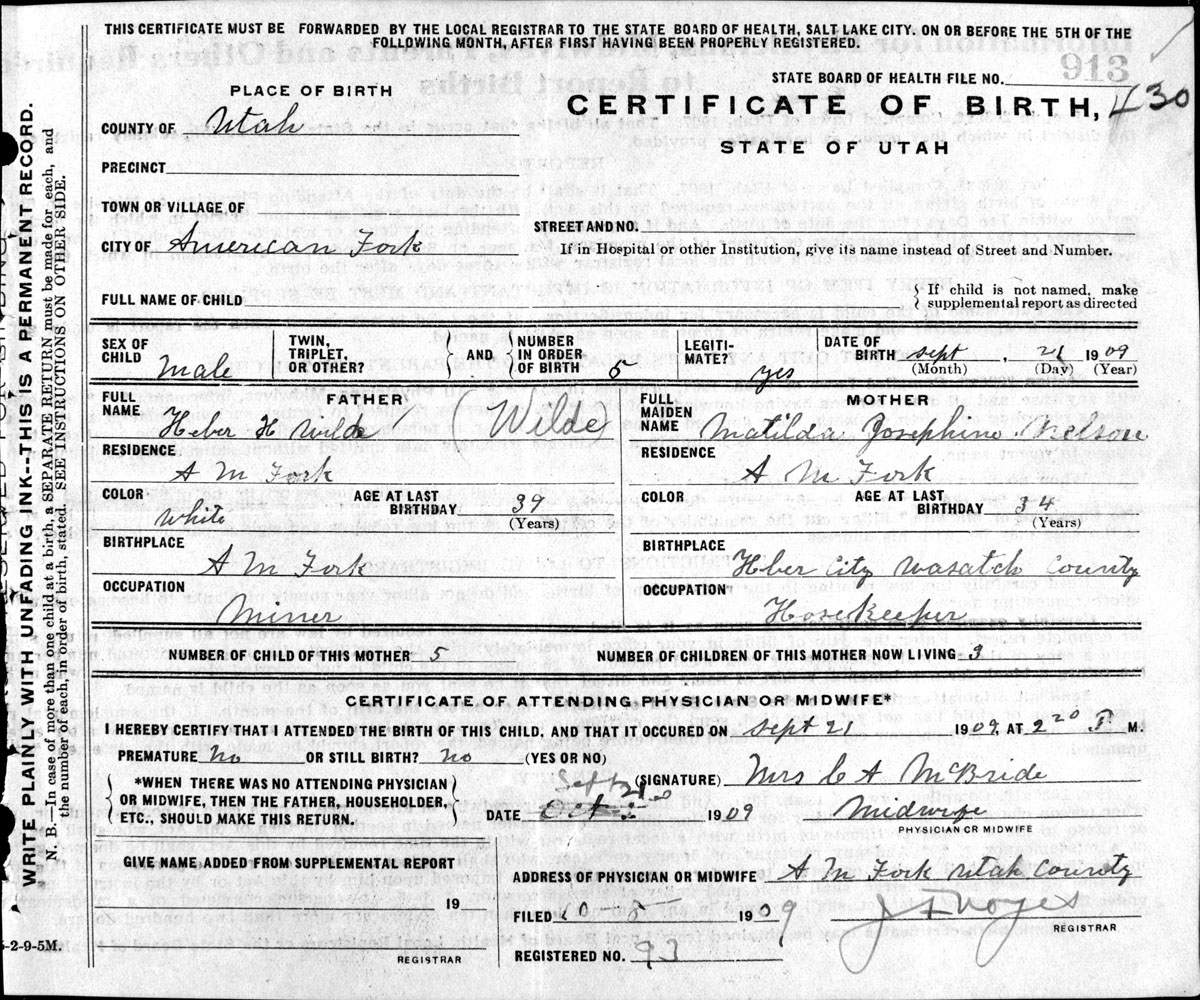 THIS CERTIFICATE MUST BE FORWARDED BY THE LOCAL REGISTRAR TO THE STATE BOARD OF HEALTH, SALT LAKE CITY, ON OR BEFORE THE 5TH OF THE
FOLLOWING MONTH, AFTER FIRST HAVING BEEN PROPERLY REGISTERED.
913
STATE BOARD OF HEALTH FILE NO.
PLACE OF BIRTH
CERTIFICATE OF BIRTH, 430
STATE OF UTAH
COUNTY OF Utah
PRECINCT
TOWN OR VILLAGE OF
STREET AND NO.
CITY OF American Fork
If in Hospital or other Institution, give its name instead of Street and Number.
FULL NAME OF CHILD
{ If child is not named, make
supplemental report as directed
SEX OF CHILD Male
TWIN, TRIPLET, OR OTHER?
{ AND } NUMBER IN ORDER OF BIRTH 5
LEGITIMATE? yes
DATE OF BIRTH Sept, 21 1909
(Month) (Day) (Year)
FATHER
FULL NAME Heber H Wilde (Wilde)
RESIDENCE
A M Fork
COLOR
White
AGE AT LAST BIRTHDAY 39
(Years)
BIRTHPLACE
A M Fork
OCCUPATION
Miner
MOTHER
FULL MAIDEN NAME Matilda Josephine Nelson
RESIDENCE
A M Fork
COLOR
AGE AT LAST BIRTHDAY 34
(Years)
BIRTHPLACE
Hber City Wasatch County
OCCUPATION
Hosekeeper
NUMBER OF CHILD OF THIS MOTHER 5
NUMBER OF CHILDREN OF THIS MOTHER NOW LIVING 3
CERTIFICATE OF ATTENDING PHYSICIAN OR MIDWIFE*
I HEREBY CERTIFY THAT I ATTENDED THE BIRTH OF THIS CHILD, AND THAT IT OCCURED ON Sept 21 1909, AT 2 20 P M.
PREMATURE No OR STILL BIRTH? No (YES OR NO)
*WHEN THERE WAS NO ATTENDING PHYSICIAN
OR MIDWIFE, THEN THE FATHER, HOUSEHOLDER,
ETC., SHOULD MAKE THIS RETURN.
(SIGNATURE) Mrs C A McBride
Sept 21
DATE Oct 1909
Midwife
PHYSICIAN OR MIDWIFE
GIVE NAME ADDED FROM SUPPLEMENTAL REPORT
19
REGISTRAR
ADDRESS OF PHYSICIAN OR MIDWIFE A M Fork Utah County
FILED 10 5 1909
J F Noyes
REGISTRAR
REGISTERED NO. 93
WRITE PLAINLY WITH UNFADING INK--THIS IS A PERMANENT RECORD.
N. B.—In case of more than one child at a birth, a SEPARATE RETURN must be made for each, and
the number of each, in order of birth, stated. SEE INSTRUCTIONS ON OTHER SIDE.
5-2-9-5M.